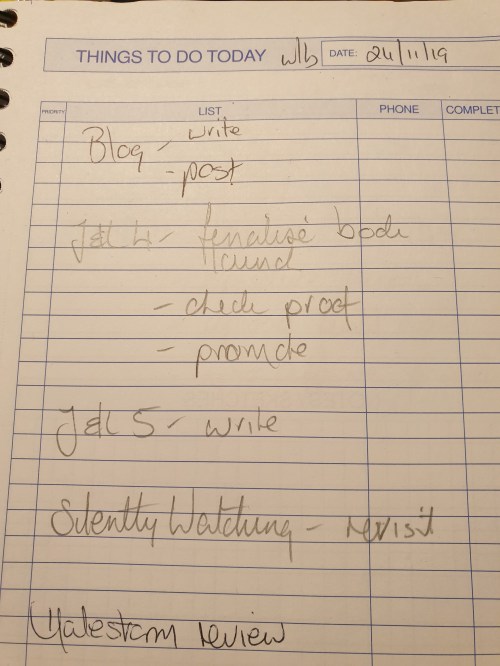 THINGS TO DO TODAY w/b DATE: 24/11/19
PRIORITY LIST PHONE COMPLET
Blog - write
- post
J&L 4 - finalise book
- check proof
- promote
J&L 5 - write
Silently Watching - revisit
review